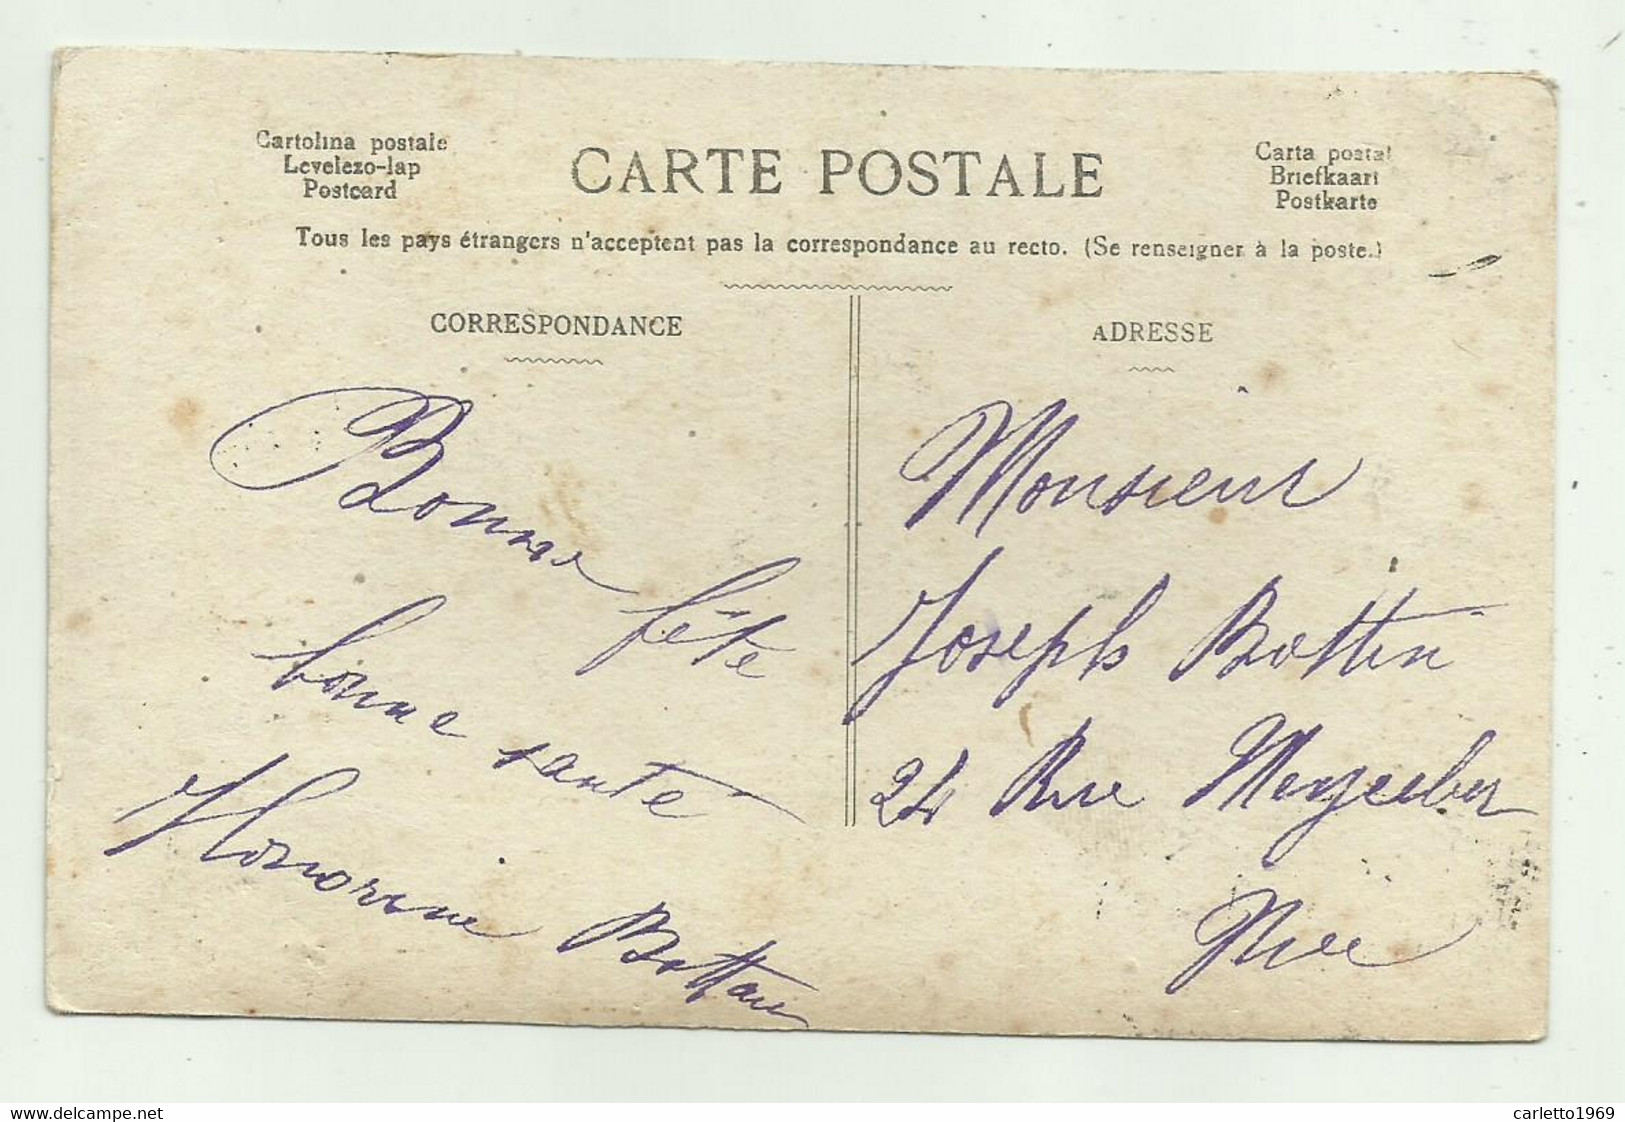 Cartolina postale
Levelezo-lap
Postcard
CARTE POSTALE
Carta postal
Briefkaart
Postkarte
Tous les pays étrangers n'acceptent pas la correspondance au recto. (Se renseigner à la poste.)
CORRESPONDANCE
ADRESSE
Bonne fête
bonne santé
Honorine
Monsieur
Joseph Bottin
24 Rue Meyerber
Nice
delcampe.net
carletto1969